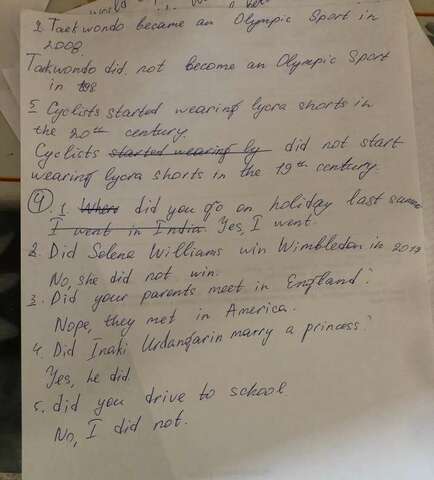 Taekwondo became an Olympic Sport in
2008.
Taekwondo did not become an Olympic Sport
in
5 Cyclists started wearing lycra shorts in
the 20th century.
Cyclists started wearing ly did not start
wearing lycra shorts in the 19th century
4. 1 Where did you go on holiday last
I went in India. Yes, I went.
2. Did Selena Williams win Wimbledon in
No, she did not win.
3. Did your parents meet in England?
Nope, they met in America.
4. Did Inaki Urdangarin marry a princess?
Yes, he did.
5. did you drive to school
No, I did not.